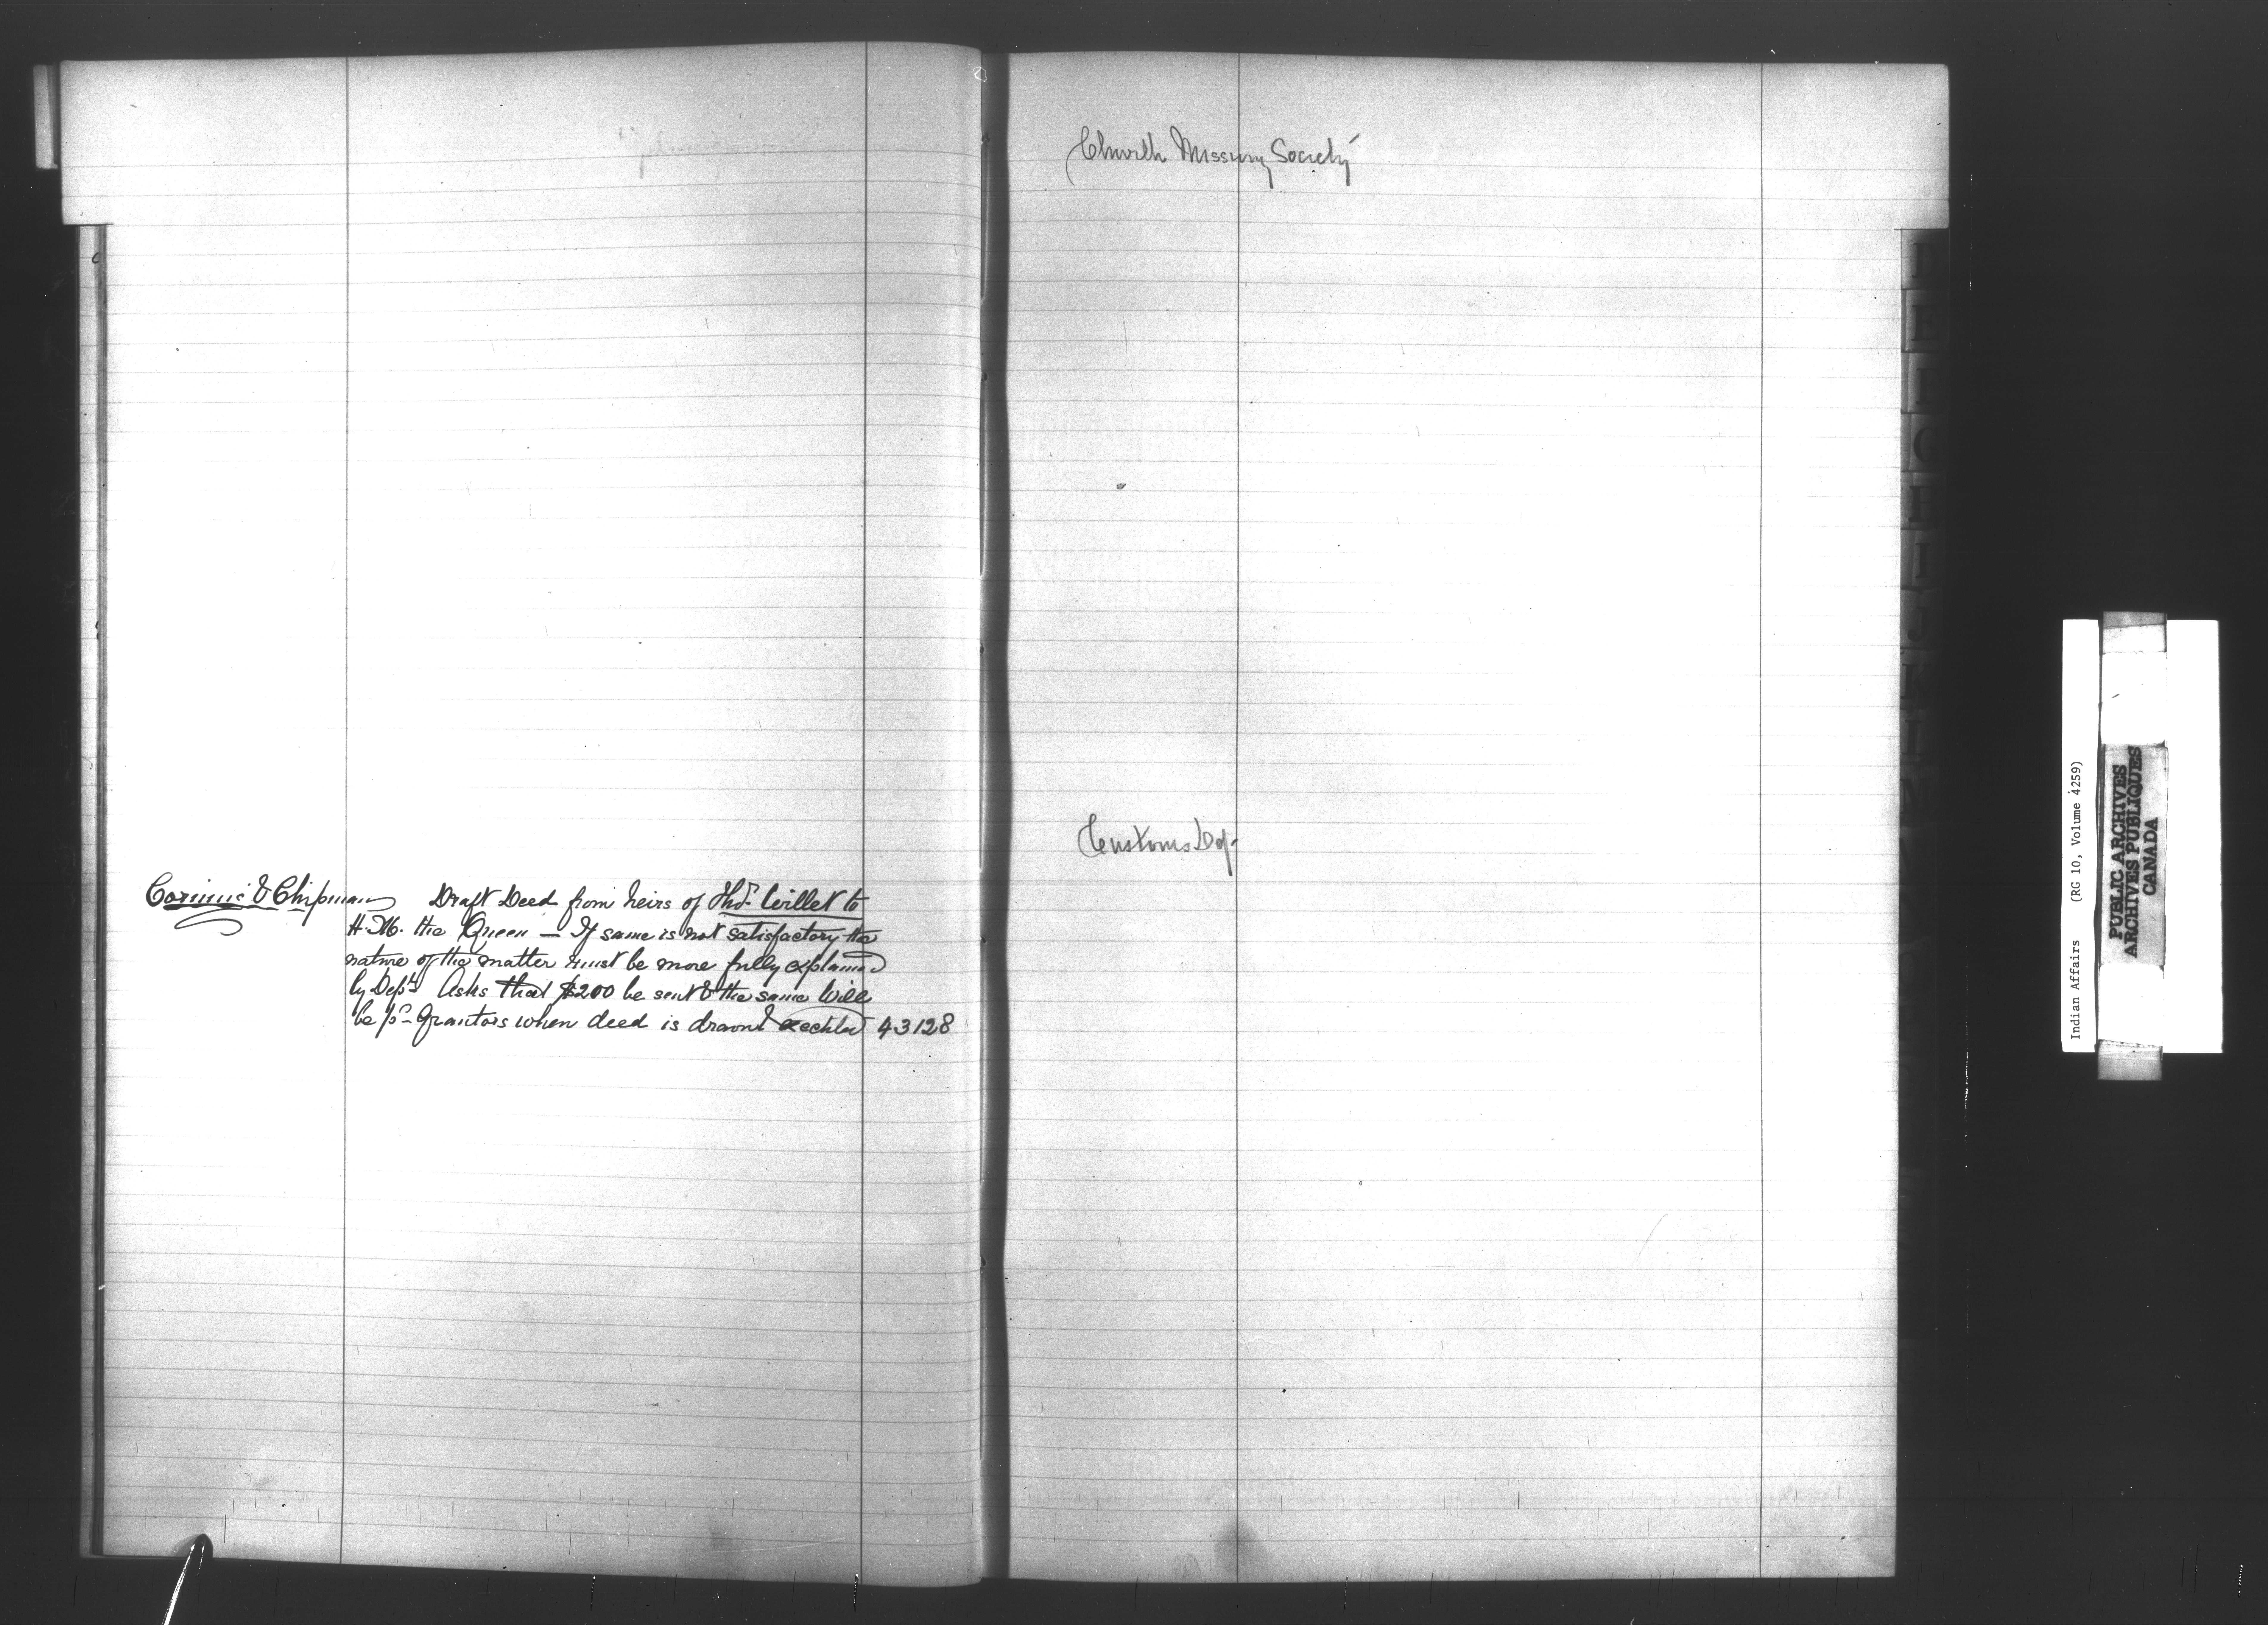 & Chipman Draft Deed from heirs of Thos. Willet to
H. M. the Queen — If same is not satisfactory the
nature of the matter must be more fully explained
by Dept. Asks that $200 be sent & the same will
be pd. Grantors when deed is drawn & 43128
Church Missury Society
Customs Dep.
Indian Affairs (RG 10, Volume 4259)
PUBLIC ARCHIVES
ARCHIVES PUBLIQUES
CANADA